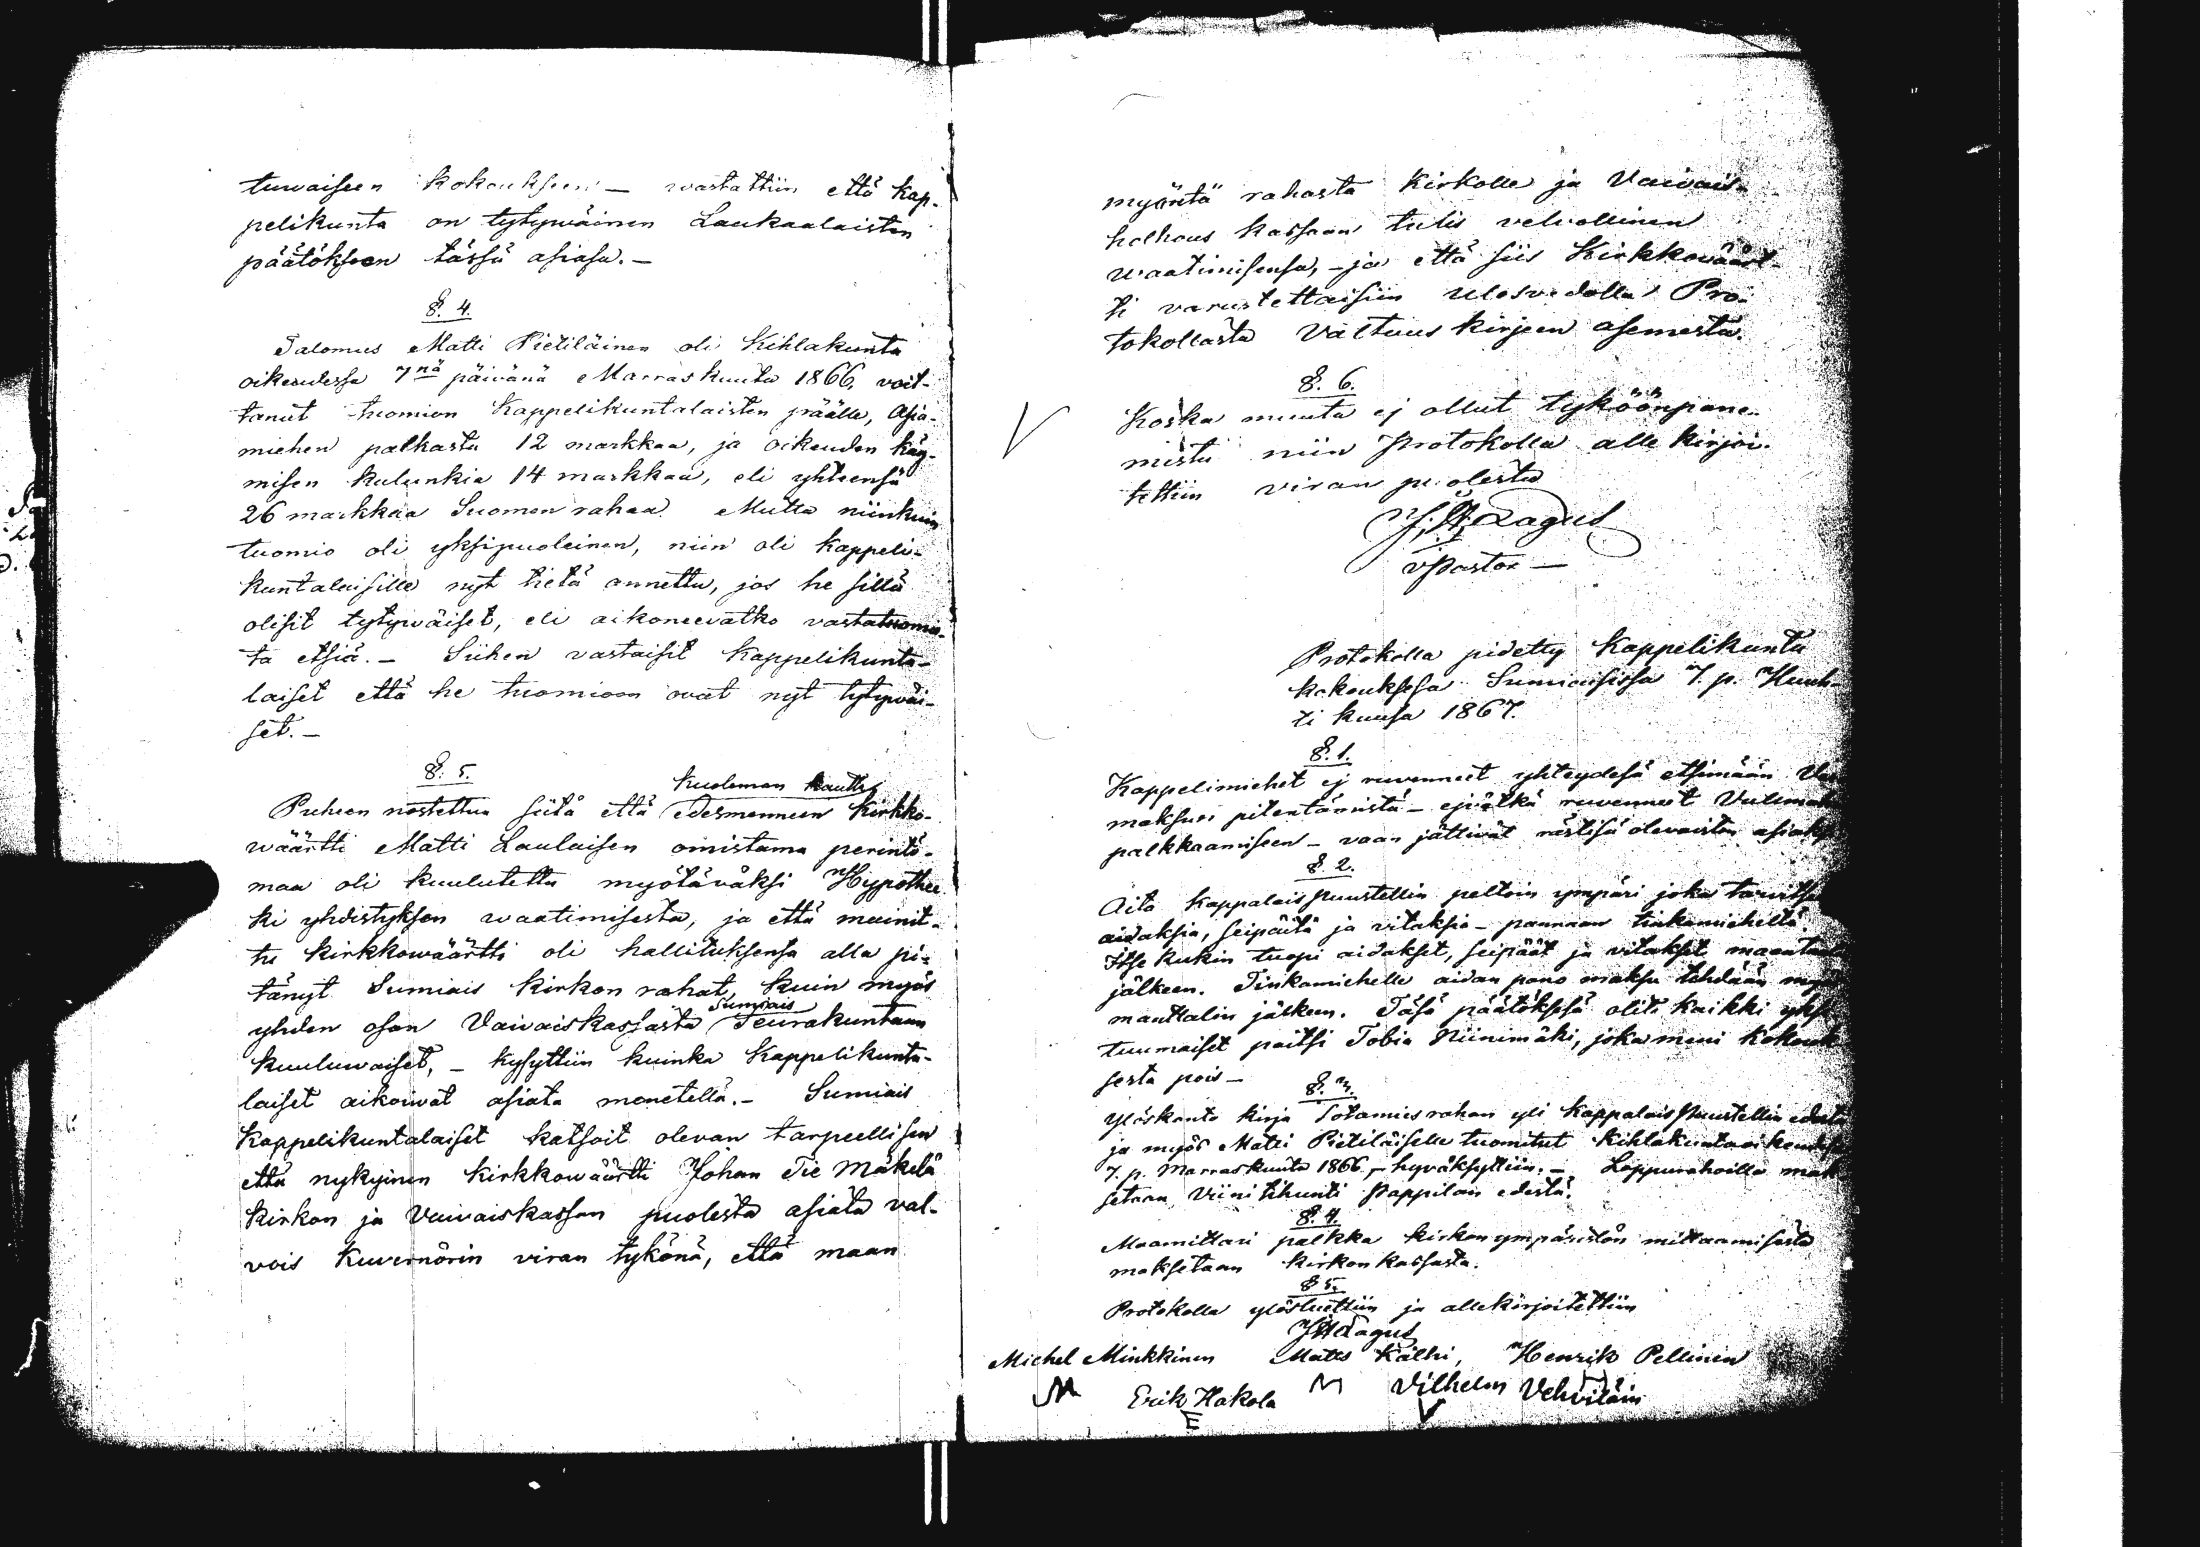 tuwaiseen kokoukseen — wastattiin että kap-
pelikunta on tytywäinen Laukaalaisten
päätökseen tässä asiasa. —
§. 4.
Talomies Matti Pietiläinen oli Kihlakunta
oikeudessa 7nä päivänä Marraskuuta 1866, voit-
tanut tuomion Kappelikuntalaisten päälle, Asia-
miehen palkasta 12 markkaa, ja oikeuden käy-
misen kulunkia 14 markkaa, eli yhteensä
26 markkaa Suomen rahaa. Mutta niinkuin
tuomio oli yksipuoleinen, niin oli Kappeli-
kuntalaisille nyt tietä annettu, jos he sillä
olisit tytywäiset, eli aikoneevatko vastatuomio-
ta etsiä. — Siihen vastaisit Kappelikunta-
laiset että he tuomioon ovat nyt tytywäi-
set. —
§. 5.
Kuoleman kautta
Puheen nostettua siitä että edesmenneen Kirkko-
wäärtti Matti Laulaisen omistama perintö-
maa oli kuulutettu myötäväksi Hypothee
ki yhdistyksen waatimisesta, ja että mainit-
tu kirkkowäärtti oli hallituksensa alla pi-
tänyt Sumiais Kirkon rahat, kuin myös
Sumiais
yhden osan Vaivaiskassasta Seurakuntaan
kuuluwaiset, — kysyttiin kuinka Kappelikunta-
laiset aikoiwat asiata menetellä. — Sumiais
Kappelikuntalaiset katsoit olevan tarpeellisen
että nykyinen kirkkowäärtti Johan Tie Mäkelä
kirkon ja Vaivaiskassan puolesta asiata val-
vois Kuvernörin viran tykönä, että maan
myöntä rahasta Kirkolle ja Vaivais-
holhous kassaan tulis velvollinen
waatimisensa, — ja että siis Kirkkowäärt-
ti varustettaisiin ulosvedolla Pro-
tokollasta Valtuus kirjeen asemesta.
§. 6.
Koska muuta ej ollut tyköönpane-
mista niin Protokolla alle kirjoi-
tettiin viran puolesta
J. H. Lagus
vPastor —
Protokolla pidetty Kappelikunta
kokouksesa Sumiaisissa 7. p. Huuh-
ti kuusa 1867.
§. 1.
Kappelimiehet ej ruvenneet yhteydesä etsimään
maksun pitentämistä — ejvätkä ruvenneet
palkkaamiseen — vaan jättivät rästisä olevaisten
§ 2.
Aita Kappalais puustellin peltoin ympäri joka
aidaksia, seipäitä ja vitaksia — pannaan tinkamiehellä.
Itse kukin tuopi aidakset, seipäät ja vitakset
jälkeen. Tinkamiehelle aidan pano maksu tehdään
manttalin jälkeen. Täsä päätöksesä olit kaikki
tuumaiset paitsi Tobia Niinimäki, joka meni
sesta pois —
§. 3.
Ylöskanto kirja Sotamies rahan yli Kappalais Puustellin
ja myös Matti Pietiläiselle tuomitut Kihlakuntaoikeudesa
7. p. Marraskuuta 1866, — hyväksyttiin. — Loppurahoilla mak
setaan Viini tihunti Pappilan edestä.
§. 4.
Maamittari palkka kirkon ympäristön mittaamisesta
maksetaan kirkon kassasta.
§ 5.
Protokolla ylösluettiin ja allekirjoitettiin
JHLagus
Michel Minkkinen Matts Kälhi, Henrik Pellinen
M Erik Hakola M Vilhelm Vehviläin
E V